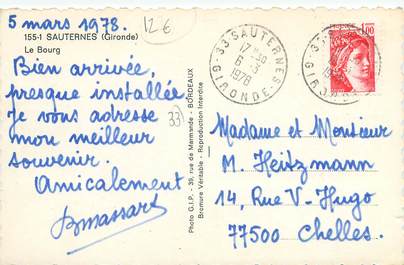 5 mars 1978.
12 €
155-1 SAUTERNES (Gironde)
Le Bourg
Bien arrivée,
presque installée
je vous adresse
mon meilleur
souvenir.
Amicalement
BMassart
33
Photo G.I.P. - 39, rue de Marmande - BORDEAUX
Bromure Véritable - Reproduction Interdite
33 SAUTERNES
17H30
6-3
1978
GIRONDE
33
GIRONDE
1,00
Madame et Monsieur
M. Heitzmann
14, Rue V-Hugo
77500 Chelles.